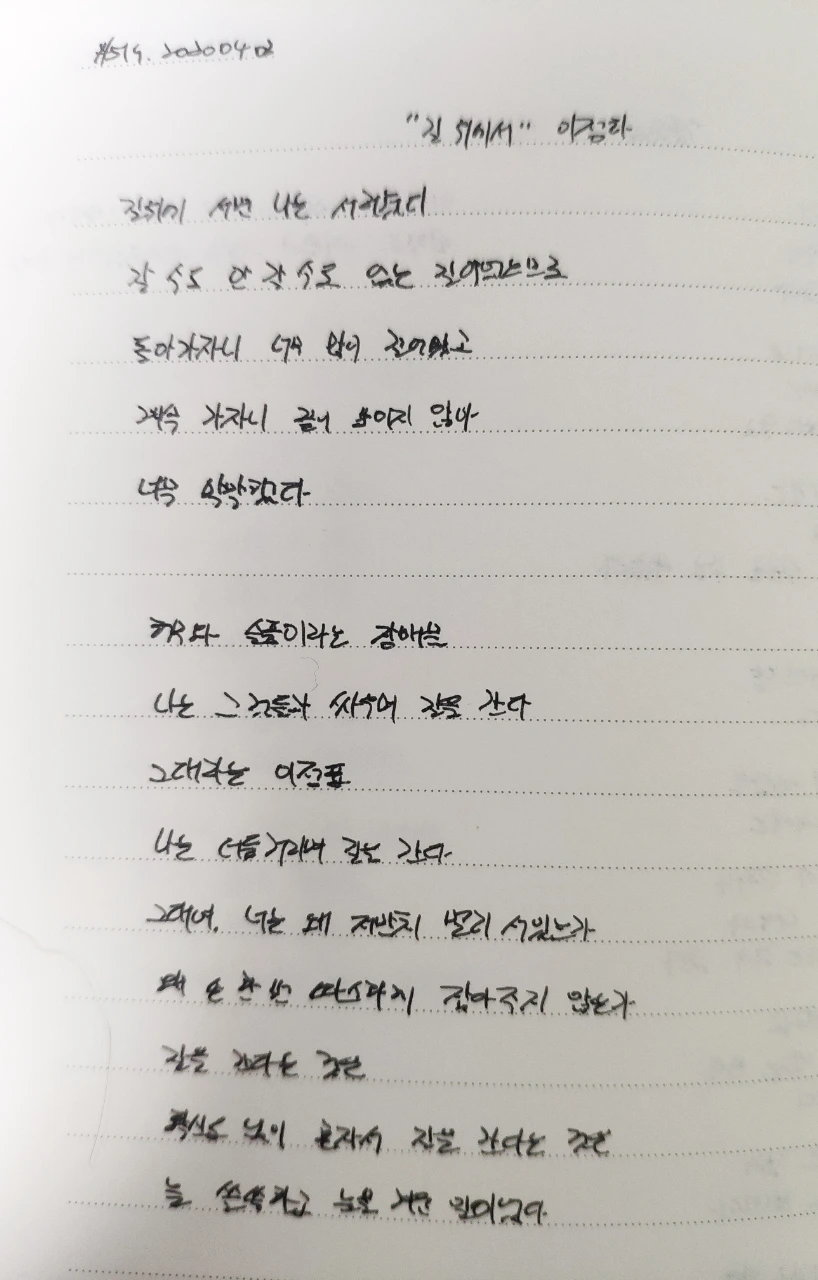 #514. 20200402
"길 위에서" 이정하
길 위에 서면 나는 서러웠다
갈 수도 안 갈 수도 없는 길이었으므로
돌아가자니 너무 많이 걸어왔고
계속 가자니 끝이 보이지 않아
너무 막막했다
허무와 슬픔이라는 장애물
나는 그것들과 싸우며 길을 간다
그대라는 이정표
나는 더듬거리며 길을 간다
그대여, 너는 왜 저만치 멀리 서 있는가
왜 손 한 번 따스하게 잡아주지 않는가
길을 간다는 것은
확신도 없이 혼자서 길을 간다는 것은
늘 쓸쓸하고 눈물 겨운 일이었다